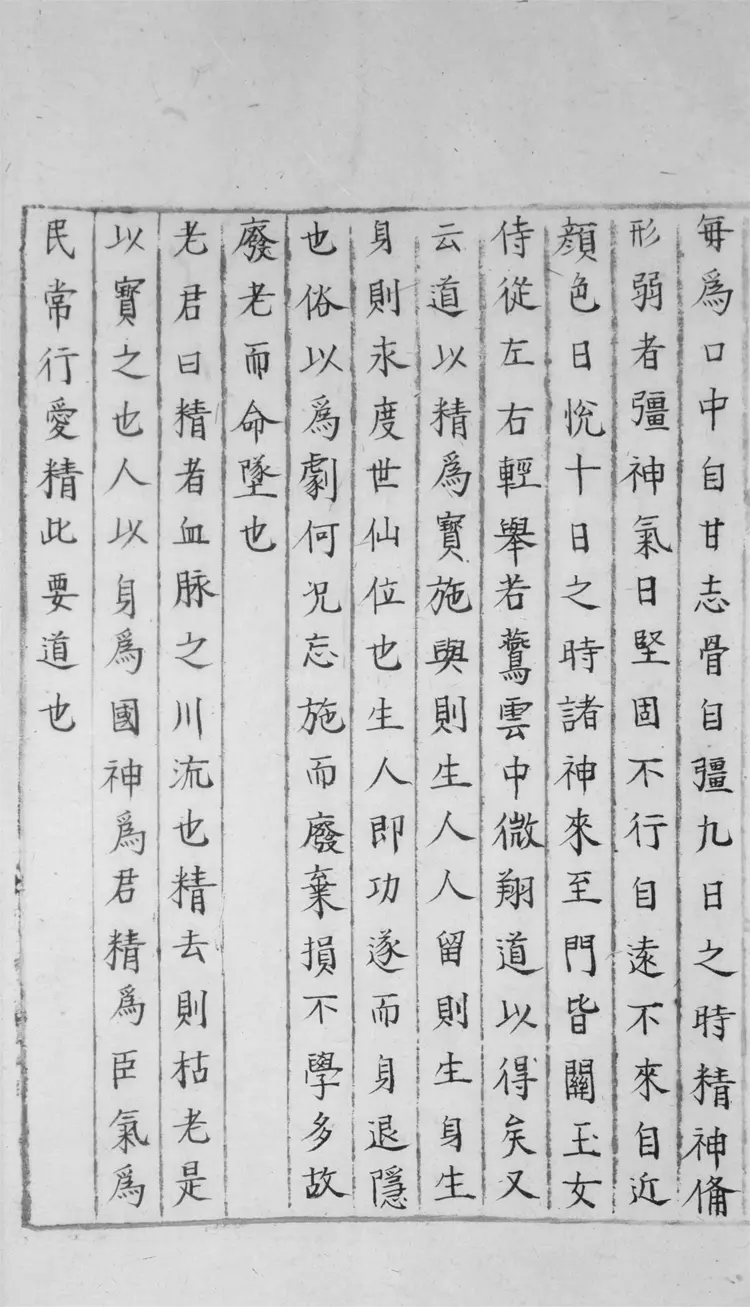 每爲口中自甘志骨自彊九日之時精神備
形弱者彊神氣日堅固不行自遠不來自近
顔色日恱十日之時諸神來至門皆關玉女
侍從左右輕舉若鶩雲中微翔道以得矣又
云道以精爲寳施與則生人人留則生身生
身則求度世仙位也生人即功遂而身退隱
也俗以爲劇何况忘施而廢棄損不學多故
廢老而命墜也
老君曰精者血脉之川流也精去則枯老是
以寳之也人以身爲國神爲君精爲臣氣爲
民常行愛精此要道也